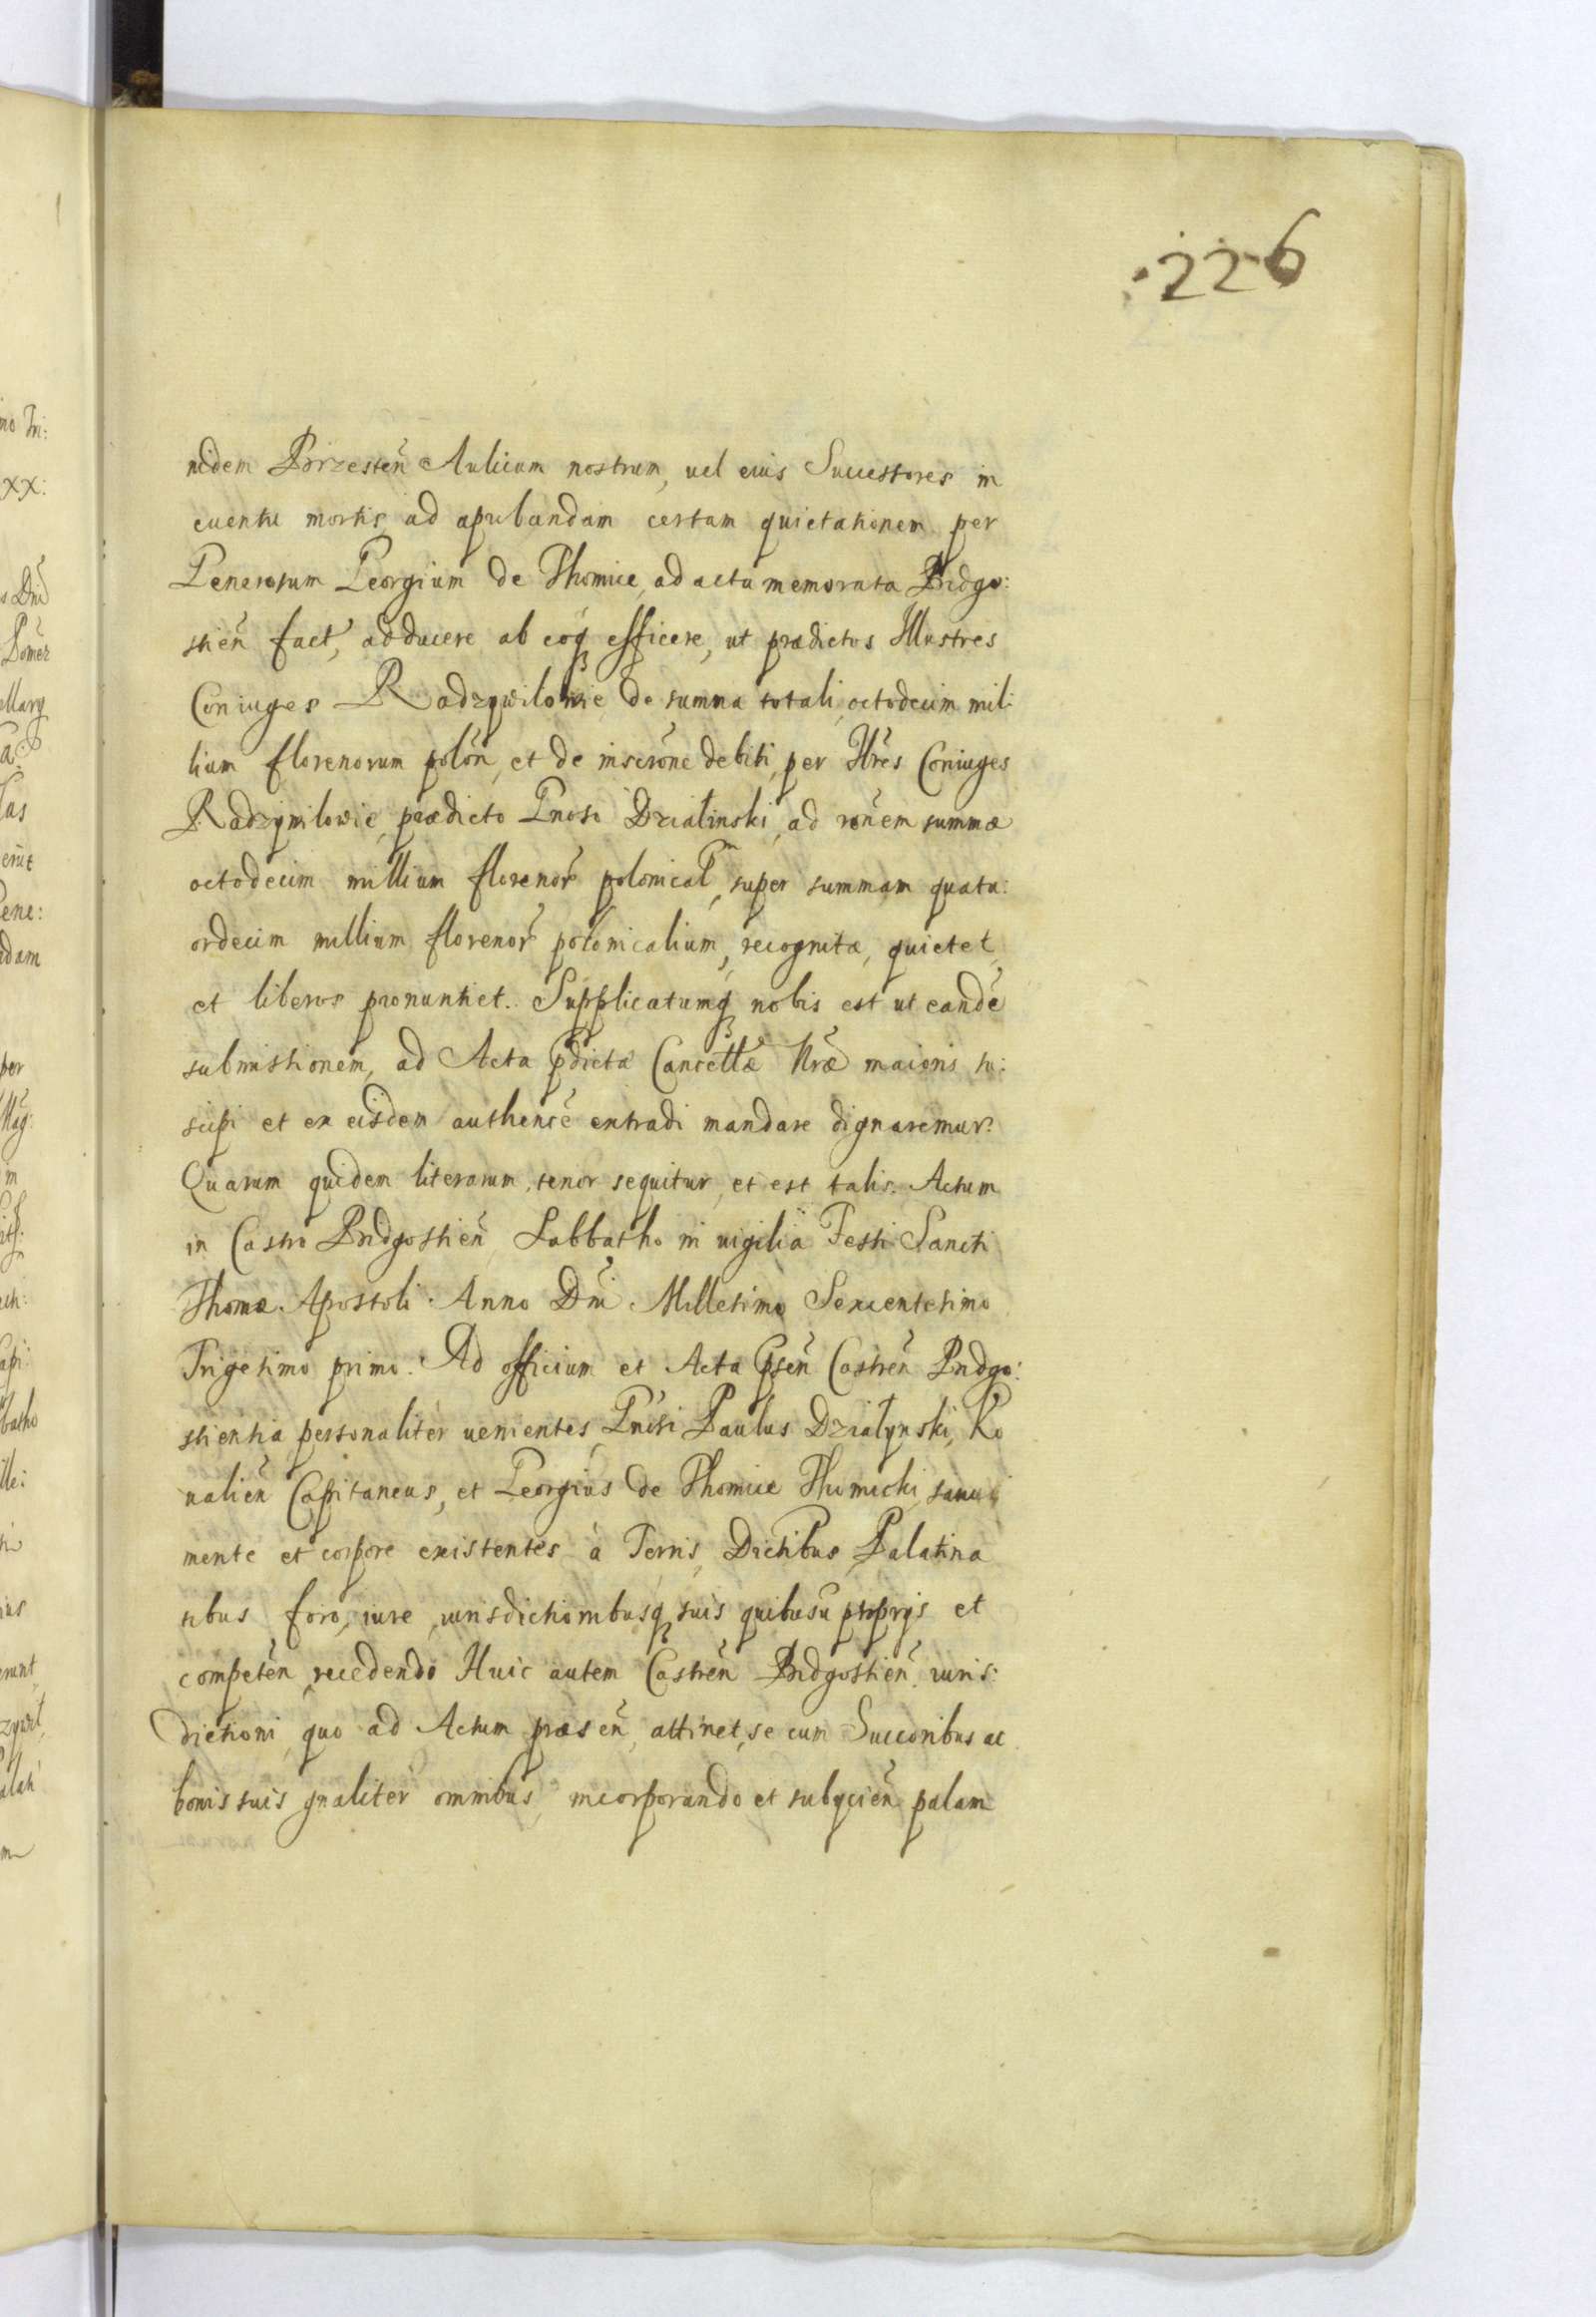 226
nidem Brzesteñ Aulicum nostrum, uel eius Successores in
euentu mortis, ad aprobandam certam quietationem per
Generosum Georgium de Thomice, ad acta memorata Bidgo:
stieñ fact, adducere ab eoq3 efficere, ut prædictos Illustres
Coniuges Radzywilowie, de summa totali, octodecim mil:
lium florenorum polon̄, et de inscrõne debiti, per Illres Coniuges
Radzywilowie, prædicto Gnoso Dzialinski, ad rõnem summæ
octodecim millium florenor̃ polonical, super summam quatu:
ordecim millium florenor̃ polonicalium, recognitæ, quietet,
et liberos pronuntiet. Supplicatumq3 nobis est ut eandẽ
submissionem, ad Acta pdictæ Cancellæ Nræ maioris su:
scipi et ex eisdem authence extradi mandare dignaremur.
Quarum quidem literarum, tenor sequitur, et est talis. Actum
in Castro Bidgostieñ, Sabbatho in uigilia Festi Sancti
Thomæ Apostoli. Anno Dni Millesimo Sexcentesimo
Trigesimo primo. Ad officium et Acta pseñ Castreñ Bidgo:
stientia personaliter uenientes, Gnosi Paulus Działynski, Ko
ualieñ Capitaneus, et Georgius de Thomice Thomicki, sanui
mente et corpore existentes à Terris, Dictibus, Palatina
tibus foro, iure, iurisdictionibusq3 suis quibusu proprys et
competeñ, recedendo Huic autem Castreñ Bidgostieñ iuris:
dictioni, quo ad Actum præseñ, attinet, se cum Succoribus ac
bonis suis gnaliter omnibus, incorporando et subycieñ palam